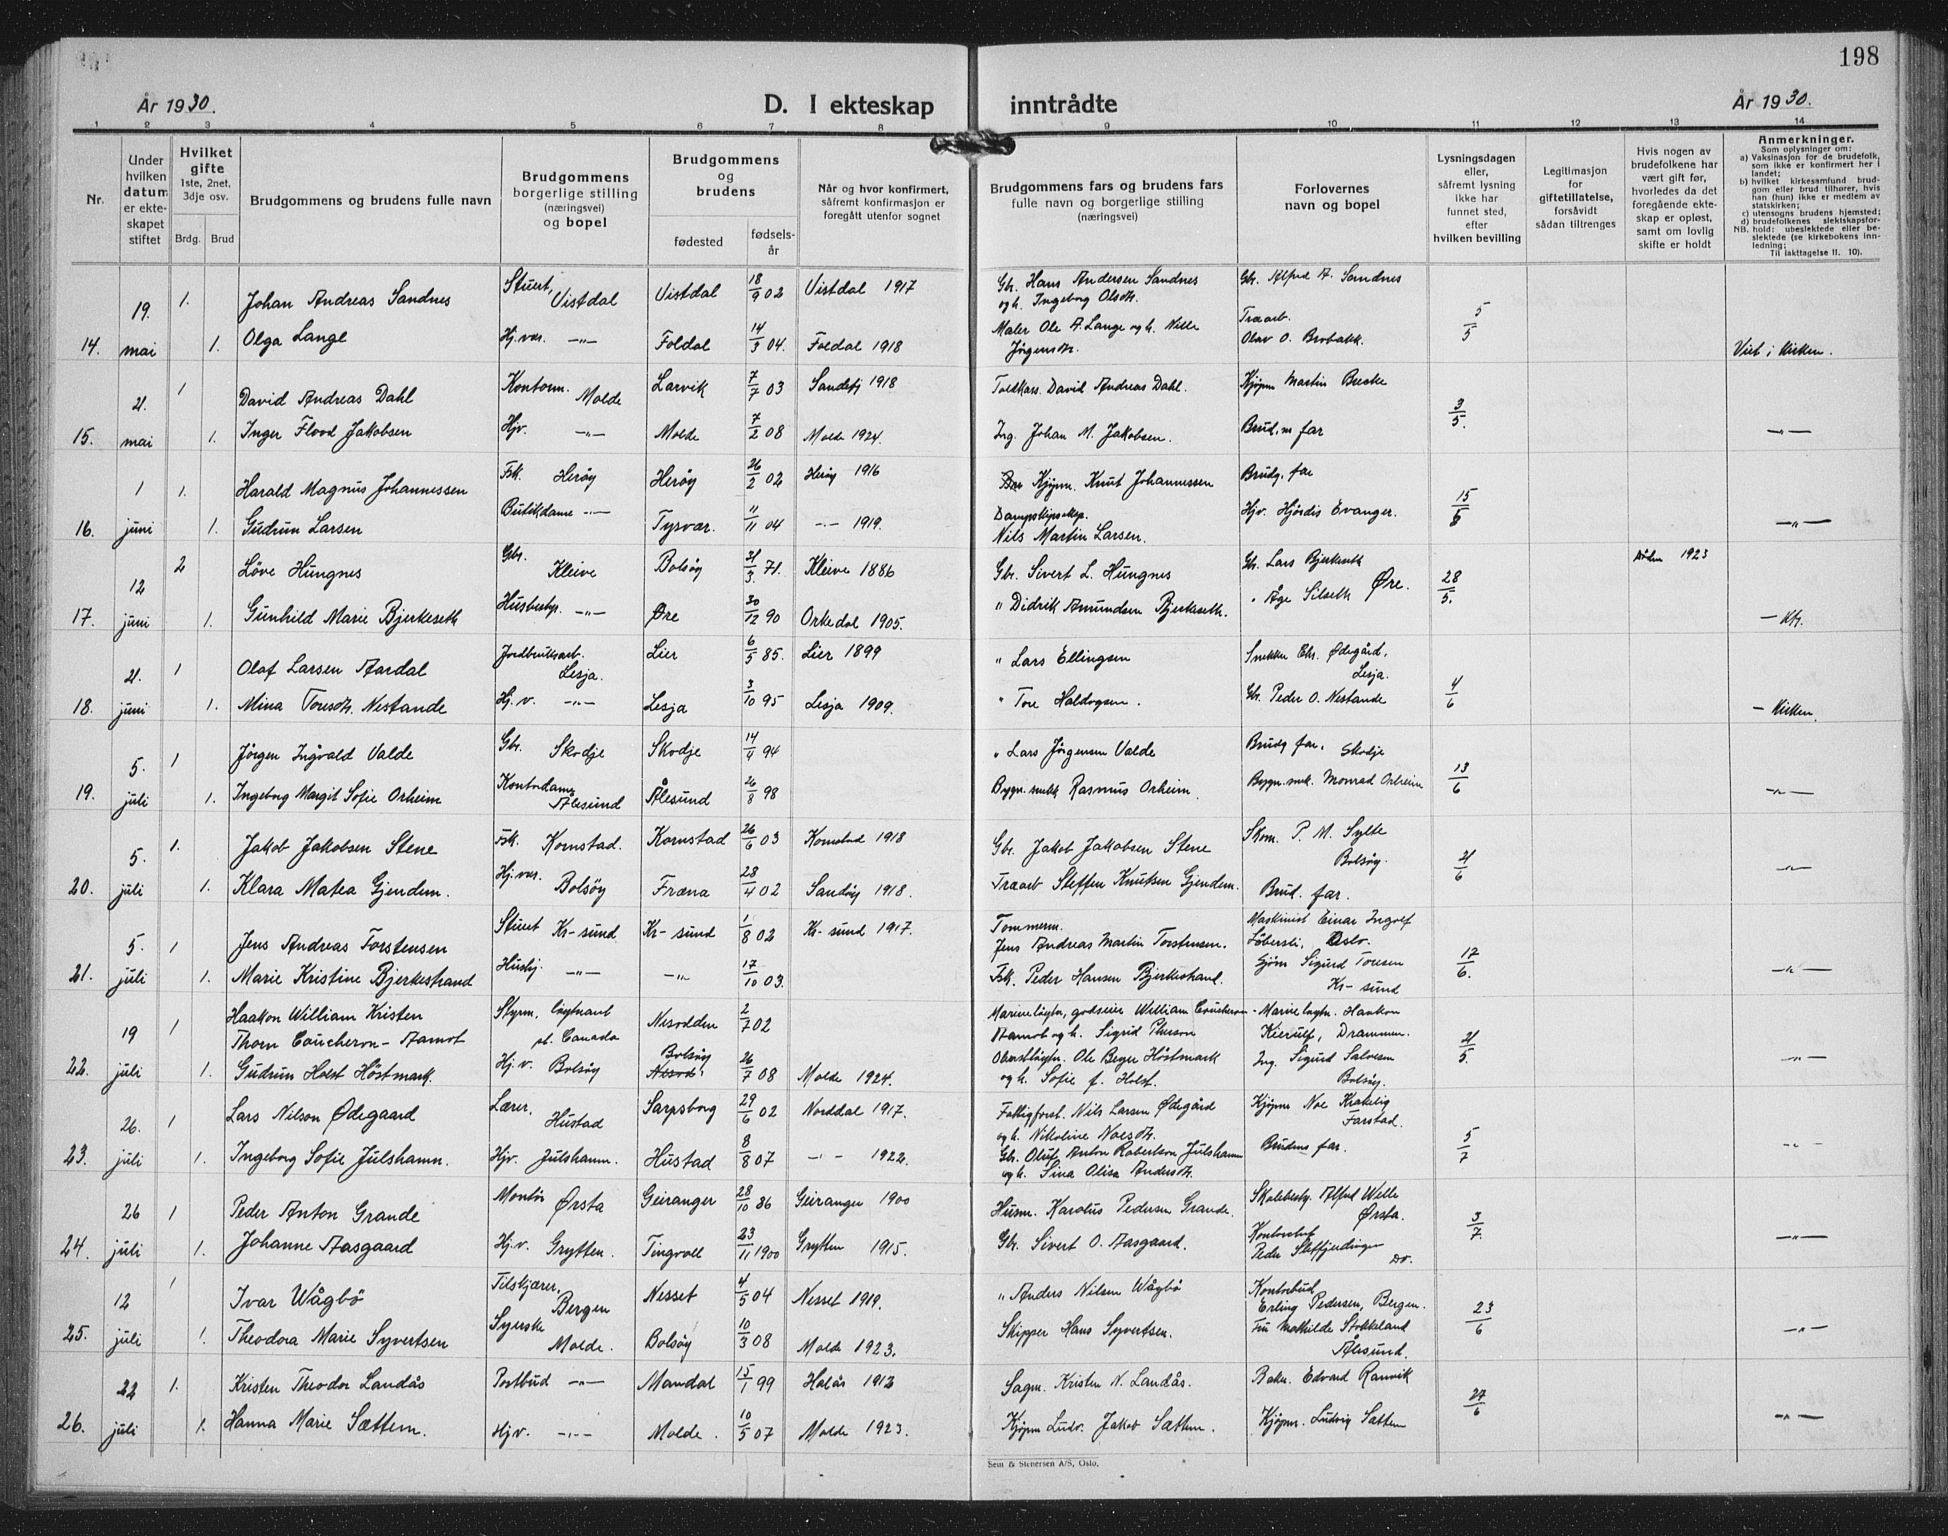 198
År 1930.
D. I ekteskap inntrådte
År 1930.
1 2 3 4 5 6 7 8 9 10 11 12 13 14
Nr.
Under hvilken datum er ekteskapet stiftet
Hvilket gifte
1ste, 2net, 3dje osv.
Brdg. Brud
Brudgommens og brudens fulle navn
Brudgommens borgerlige stilling (næringsvei) og bopel
Brudgommens og brudens
fødested
fødselsår
Når og hvor konfirmert, såfremt konfirmasjon er foregått utenfor sognet
Brudgommens fars og brudens fars fulle navn og borgerlige stilling (næringsvei)
Forlovernes navn og bopel
Lysningsdagen eller, såfremt lysning ikke har funnet sted, efter hvilken bevilling
Legitimasjon for giftetillatelse, forsåvidt sådan tiltrenges
Hvis nogen av brudefolkene har vært gift før, hvorledes da det foregående ekteskap er opløst, samt om lovlig skifte er holdt
Anmerkninger.
Som oplysninger om:
a) Vaksinasjon for de brudefolk, som ikke er konfirmert her i landet;
b) hvilket kirkesamfund brudgom eller brud tilhører, hvis han (hun) ikke er medlem av statskirken;
c) utensogns brudens hjemsted;
d) brudefolkenes slektskapsforhold: ubeslektede eller beslektede (se kirkebokens innledning;
NB.
Til iakttagelse II. 10).
19. 1. Johan Andreas Sandnes Stuert, Vistdal Vistdal 18/9 02 Vistdal 1917 Gbr. Hans Andersen Sandnes og h. Ingeborg Olsdtr. Gbr. Alfred A. Sandnes 5/5
14. mai 1. Olga Lange Hj. vær. -"- Foldal 14/3 04. Foldal 1918 Maler Ole A. Lange og h. Nille Jörgensdtr. Træarb. Olav O. Brobakk. Viet i kirken.
21. 1 David Andreas Dahl Kontorm. Molde Larvik 7/7 03 Sandefj 1918 Toldkass. David Andreas Dahl. Kjøpm Martin Breske 3/5.
15. mai 1. Inger Flood Jakobsen Hjv. -"- Molde 7/2 08 Molde 1924. Ing. Johan M. Jakobsen. Brud.n far -"-
1 1. Harald Magnus Johannessen Fsk. Herøy Herøy 26/2 02 Herøy 1916 Kjøpm. Knut Johannessen Brudg. far 15/5
16. juni 1. Gudrun Larsen Butikdame -"- Tysvær. 11/11 04 -"- 1919. Dampskipseksp. Nils Martin Larsen. Hjv. Hjördis Evanger. -"-
12 2 Löve Hungnes Gbr. Kleive Bolsöy 31/3. 71. Kleive 1886 Gbr. Sivert L. Hungnes Gbr. Lars Bjerkeseth 28/5. döden 1923
17. juni 1. Gunhild Marie Bjerkeseth Husbestyr. -"- Øre 30/12 90 Orkedal 1905. " Didrik Amundsen Bjerkeseth. " Åge Silseth Øre. - Kfr.
21. 1 Olaf Larsen Aardal Jordbruksarb. Lesja. Lier 6/5 85. Lier 1899 " Lars Ellingsen Snekker Chr. Ødegård, Lesja. 4/6
18. juni 1. Mina Toresdtr. Nestande Hj. v. -"- Lesja 3/10 95 Lesja 1909. " Tore Haldogsen. Gbr. Peder O. Nestande - Kirken.
5. 1 Jörgen Ingvald Valde Gbr. Skodje Skodje 14/4 94 " Lars Jörgensen Valde Brudg far. Skodje 13/6
19. juli 1. Ingeborg Margit Sofie Orheim Kontordame Ålesund Ålesund 26/8 98 Bygn. snekk Rasmus Orheim. Bygn. snk. Monrad Orheim -"-
5. 1. Jakob Jakobsen Stene Fsk. Kornstad. Kornstad 26/6 03 Kornstad 1918 Gbr. Jakob Jakobsen Stene Skom. P. M. Sylte Bolsöy. 21/6
20. juli 1. Klara Matea Gjendem. Hj. vær. Bolsöy Fræna 28/4 02 Sandöy 1918. Træarb Steffen Knutsen Gjendem. Brud. far. -"-
5. 1 Jens Andreas Torstensen Stuert Kr-sund Kr-sund 1/8 02 Kr-sund 1917. Tømmerm. Jens Andreas Martin Torstensen. Maskinist Einar Ingolf Löberli, Oslo. 17/6.
21. juli 1. Marie Kristine Bjerkestrand Husbj. -"- -"- 17/10 03. Fsk. Peder Hansen Bjerkestrand. Gjörn Sigurd Toresen Kr-sund -"-
19 1 Haakon William Kristen Thorn Coucheron-Aamot Styrm. löytnant pt. Canada Nesodden 2/7 02 Marineløytn., godseier William Coucheron-Aamot og h. Sigrid Iversen Marineløytn. Haakon Kierulf, Drammen. 21/5.
22. juli 1. Gudrun Holst Höstmark. Hj. v. Bolsöy Bolsöy 26/7 08 Molde 1924. Oberstløytn. Ole Berger Höstmark og h. Sofie f. Holst. Ing. Sigurd Salvesen Bolsöy. -"-
26. 1 Lars Nilson Ødegaard Lærer, Hustad Sarpsborg 29/6 02 Norddal 1917. Fattigforst. Nils Larsen Ødegård og h. Nikoline Noesdtr. Kjøpm Noe Krakelig Farstad. 5/7
23. juli 1. Ingeborg Sofie Julshamn. Hjv. Julshamn. Hustad 8/8 07 -"- 1922. Gbr. Oluf Anton Robertson Julshamn og h. Sina Olisa Andersdtr. Brudens far. -"-
26 1 Peder Anton Grande Montør Ørsta Geiranger 28/10 86 Geiranger 1900 Husm. Karolus Pedersen Grande. Skolebesty. Alfred Welle Ørsta. 3/7.
24. juli 1. Johanne Aasgaard Hj. v. Grytten. Tingvoll 23/11 1900 Grytten 1915. Gbr. Sivert O. Aasgaard. Kontorchef Peder Steffjerdingen Do. -"-
12 1 Ivar Wågbö Tilskjærer, Bergen Nesset 4/5 04 Nesset 1919. " Anders Nilsen Wågbö Kontorbud Erling Pedersen, Bergen. 23/6
25. juli 1. Theodora Marie Syvertsen Syerske Molde. Bolsöy 10/3 08 Molde 1923. Skipper Hans Syvertsen. Fru Mathilde Stokkeland Ålesund. -"-
22 1. Kristen Theodor Landås Postbud -"- Mandal 15/1 99 Halås 1913 Sagm. Kristen N. Landås. Baker. Edvard Ranvik 27/6
26. juli 1. Hanna Marie Sættem. Hjv. -"- Molde. 10/5 07 Molde 1923. Kjöpm Ludv. Jakob Sættem. Kjöpm. Ludvig Sættem -"-
Sem & Stenersen A/S, Oslo.